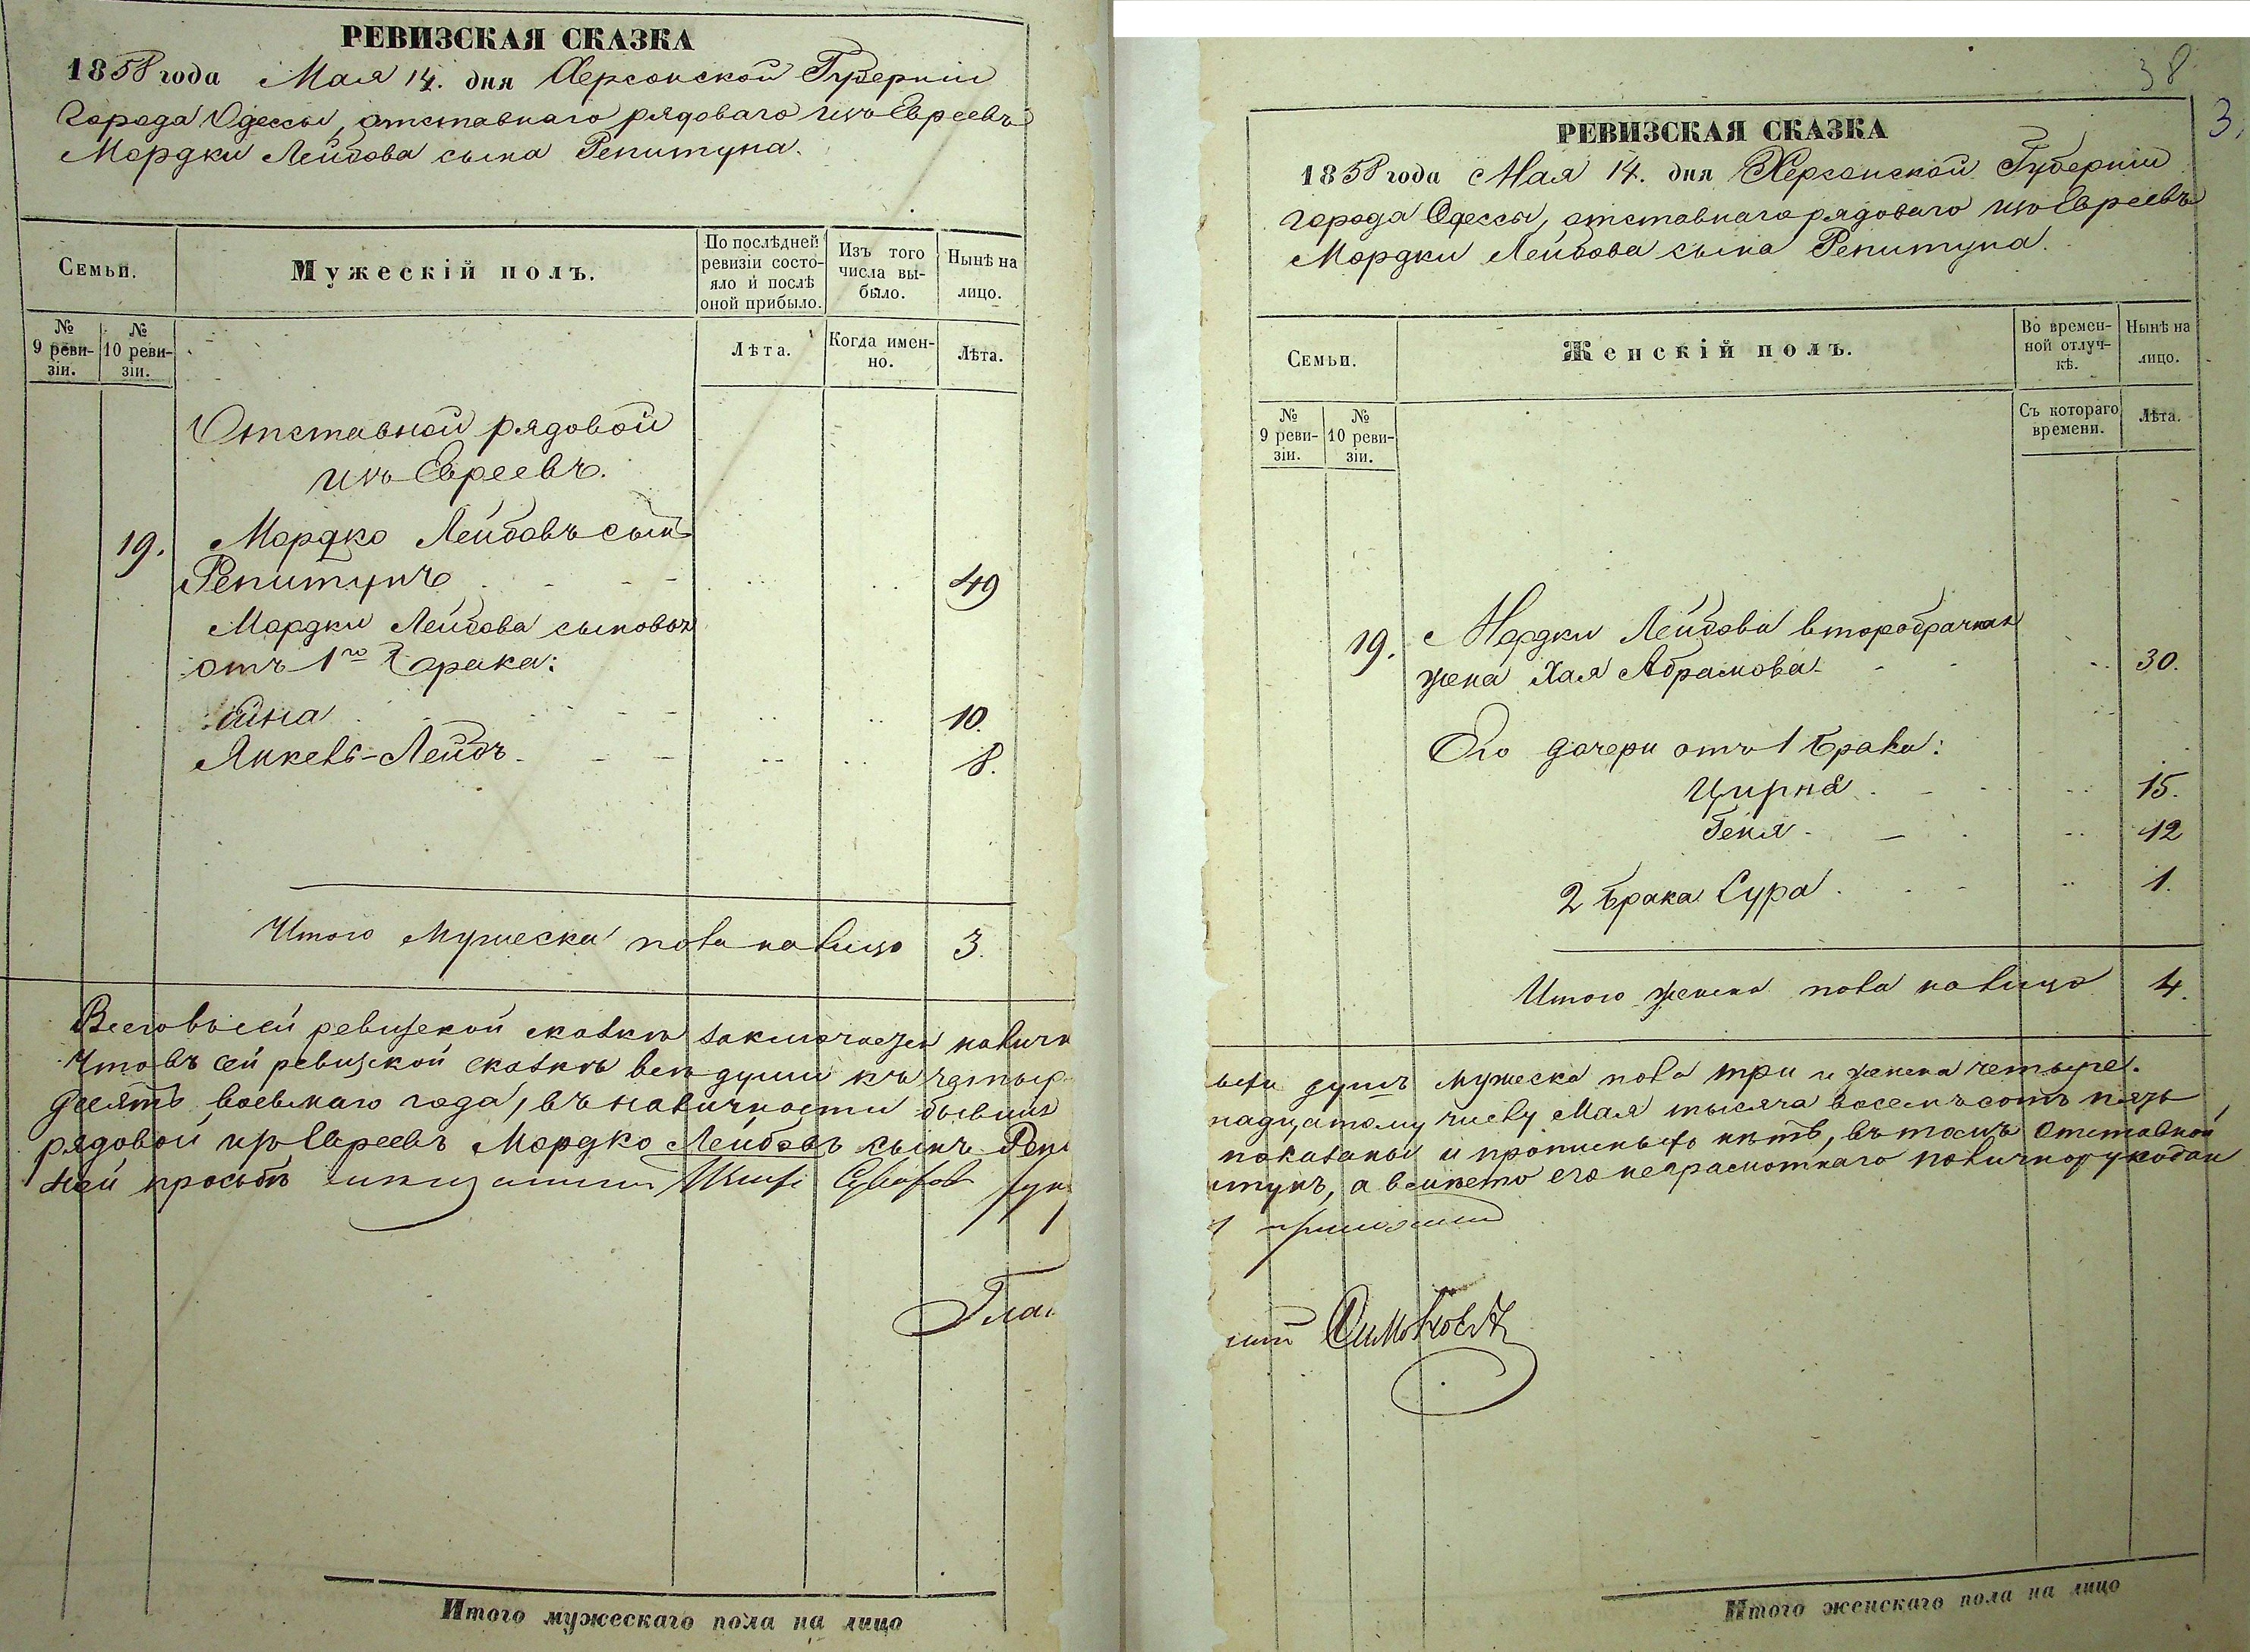 РЕВИЗСКАЯ СКАЗКА
1858 года Мая 14. дня Херсонской Губерніи
Города Одессы, отставнаго рядоваго изъ Евреевъ
Мордки Лейбова сына Репитуна.
Семьи.
Мужескій полъ.
По послѣдней
ревизіи состо-
яло и послѣ
оной прибыло.
Изъ того
числа вы-
было.
Нынѣ на
лицо.
№
9 реви-
зіи.
№
10 реви-
зіи.
Лѣта.
Когда имен-
но.
Лѣта.
Отставной рядовой
изъ Евреевъ.
19. Мордко Лейбовъ сынъ
Репитунъ 49
Мордки Лейбова сыновья
отъ 1го брака:
10.
Янкель-Лейбъ 8.
Итого мужеска пола на лицо 3.
Всего въ сей ревизской сказкѣ заключается налич
Что въ сей ревизской сказкѣ всѣ души къ четыр
десятъ восьмаго года, въ наличности бывшія
рядовой изъ Евреевъ Мордко Лейбовъ сынъ Репи
ней просьбѣ
Глас
Итого мужескаго пола на лицо
38
3.
РЕВИЗСКАЯ СКАЗКА
1858 года Мая 14. дня Херсонской Губерніи
города Одессы, отставнаго рядоваго изъ Евреевъ
Мордки Лейбова сына Репитуна.
Семьи.
Женскій полъ.
Во времен-
ной отлуч-
кѣ.
Нынѣ на
лицо.
№
9 реви-
зіи.
№
10 реви-
зіи.
Съ котораго
времени.
Лѣта.
19. Мордки Лейбова второбрачная
жена Хая Абрамова 30.
Его дочери отъ 1 брака:
Цирна 15.
Геня 12
2 брака Сура 1.
Итого женска пола на лицо 4.
душъ мужеска пола три и женска четыре.
надцатому числу Мая тысяча восемъ сотъ пять
показаны и прописныхъ нѣтъ, въ томъ Отставной
итунъ, а вмѣсто его неграмотнаго по
приложилъ
Симонович
Итого женскаго пола на лицо